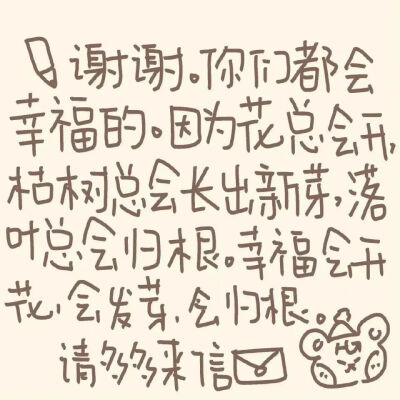 谢谢。你们都会
幸福的。因为花总会开,
枯树总会长出新芽,落
叶总会归根。幸福会开
花,会发芽,会归根。
请多多来信